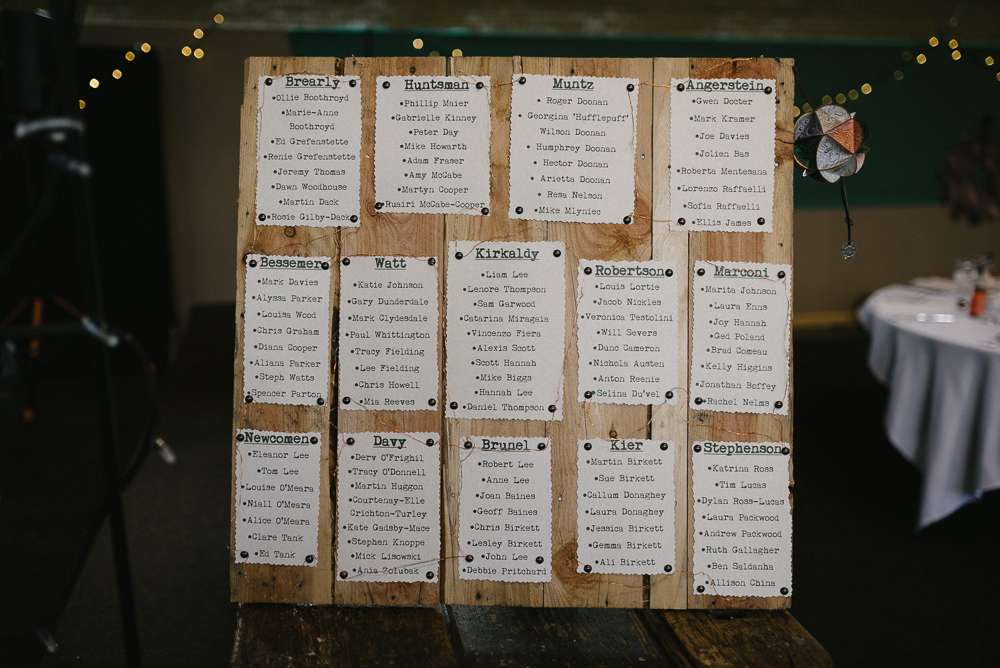 Brearly
•Ollie Boothroyd
•Marie-Anne
Boothroyd
•Ed Grefenstette
•Renie Grefenstette
•Jeremy Thomas
•Dawn Woodhouse
•Martin Dack
•Rosie Gilby-Dack
Huntsman
•Phillip Maier
•Gabrielle Kinney
•Peter Day
•Mike Howarth
•Adam Fraser
•Amy McCabe
•Martyn Cooper
•Ruairi McCabe-Cooper
Muntz
• Roger Doonan
• Georgina 'Hufflepuff'
Wilson Doonan
• Humphrey Doonan
• Hector Doonan
• Arietta Doonan
• Resa Nelson
•Mike Mlyniec
Angerstein
•Gwen Docter
•Mark Kramer
•Joe Davies
•Jolien Bas
•Roberta Mentesana
•Lorenzo Raffaelli
•Sofia Raffaelli
•Ellis James
Bessemer
•Mark Davies
•Alyssa Parker
•Louisa Wood
•Chris Graham
•Diana Cooper
•Aliana Parker
•Steph Watts
•Spencer Parton
Watt
•Katie Johnson
•Gary Dunderdale
•Mark Clydesdale
•Paul Whittington
•Tracy Fielding
•Lee Fielding
•Chris Howell
•Mia Reeves
Kirkaldy
•Liam Lee
•Lenore Thompson
•Sam Garwood
•Catarina Miragaia
•Vincenzo Fiera
•Alexis Scott
•Scott Hannah
•Mike Biggs
•Hannah Lee
•Daniel Thompson
Robertson
•Louis Lortie
•Jacob Nickles
•Veronica Testolini
•Will Severs
•Dunc Cameron
•Nichola Austen
•Anton Reenie
•Selina Du'vel
Marconi
•Marita Johnson
•Laura Enns
•Joy Hannah
•Ged Poland
•Brad Comeau
•Kelly Higgins
•Jonathan Boffey
•Rachel Nelms
Newcomen
•Eleanor Lee
•Tom Lee
•Louise O'Meara
•Niall O'Meara
•Alice O'Meara
•Clare Tank
•Ed Tank
Davy
•Derv O'Frighil
•Tracy O'Donnell
•Martin Huggon
•Courtenay-Elle
Crichton-Turley
•Kate Gadsby-Mace
•Stephen Knoppe
•Mick Lisowski
•Ania Zofubak
Brunel
•Robert Lee
•Anne Lee
•Joan Baines
•Geoff Baines
•Chris Birkett
•Lesley Birkett
•John Lee
•Debbie Pritchard
Kier
•Martin Birkett
•Sue Birkett
•Callum Donaghey
•Laura Donaghey
•Jessica Birkett
•Gemma Birkett
•Ali Birkett
Stephenson
•Katrina Ross
•Tim Lucas
•Dylan Ross-Lucas
•Laura Packwood
•Andrew Packwood
•Ruth Gallagher
•Ben Saldanha
•Allison China